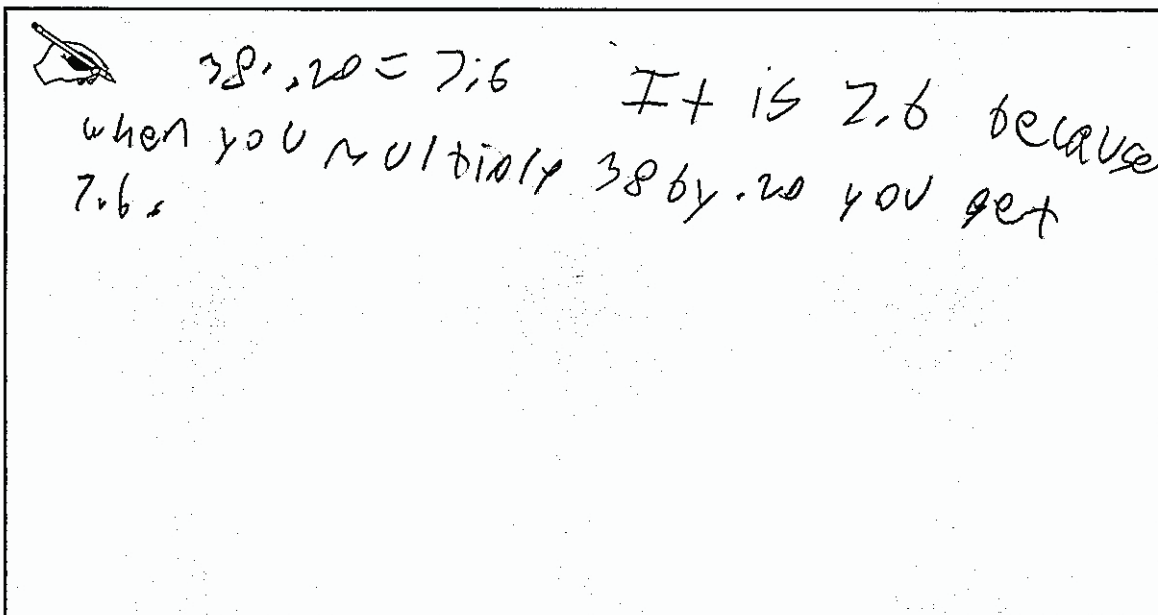 38·.20=7.6 It is 7.6 because
when you multiply 38 by .20 you get
7.6.